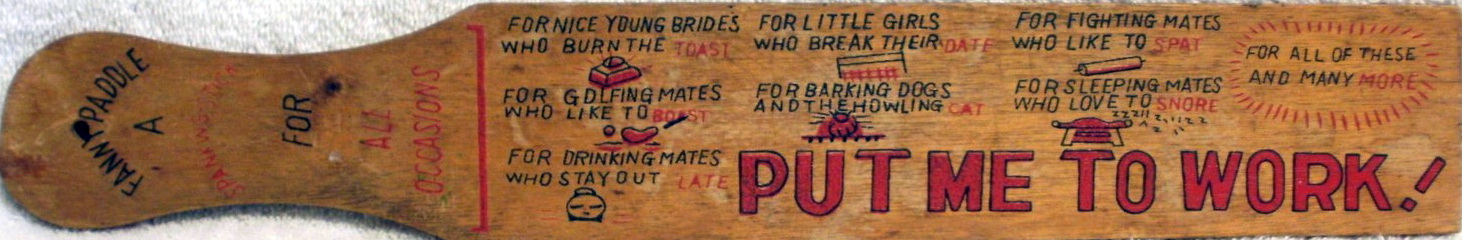 FANNY PADDLE
A
FOR
ALL
OCCASIONS
FOR NICE YOUNG BRIDES
WHO BURN THE TOAST
FOR GOLFING MATES
WHO LIKE TO BOAST
FOR DRINKING MATES
WHO STAY OUT LATE
FOR LITTLE GIRLS
WHO BREAK THEIR DATE
FOR BARKING DOGS
AND THE HOWLING CAT
FOR FIGHTING MATES
WHO LIKE TO SPAT
FOR SLEEPING MATES
WHO LOVE TO SNORE
ZZZZZZZZ
FOR ALL OF THESE
AND MANY MORE
PUT ME TO WORK!